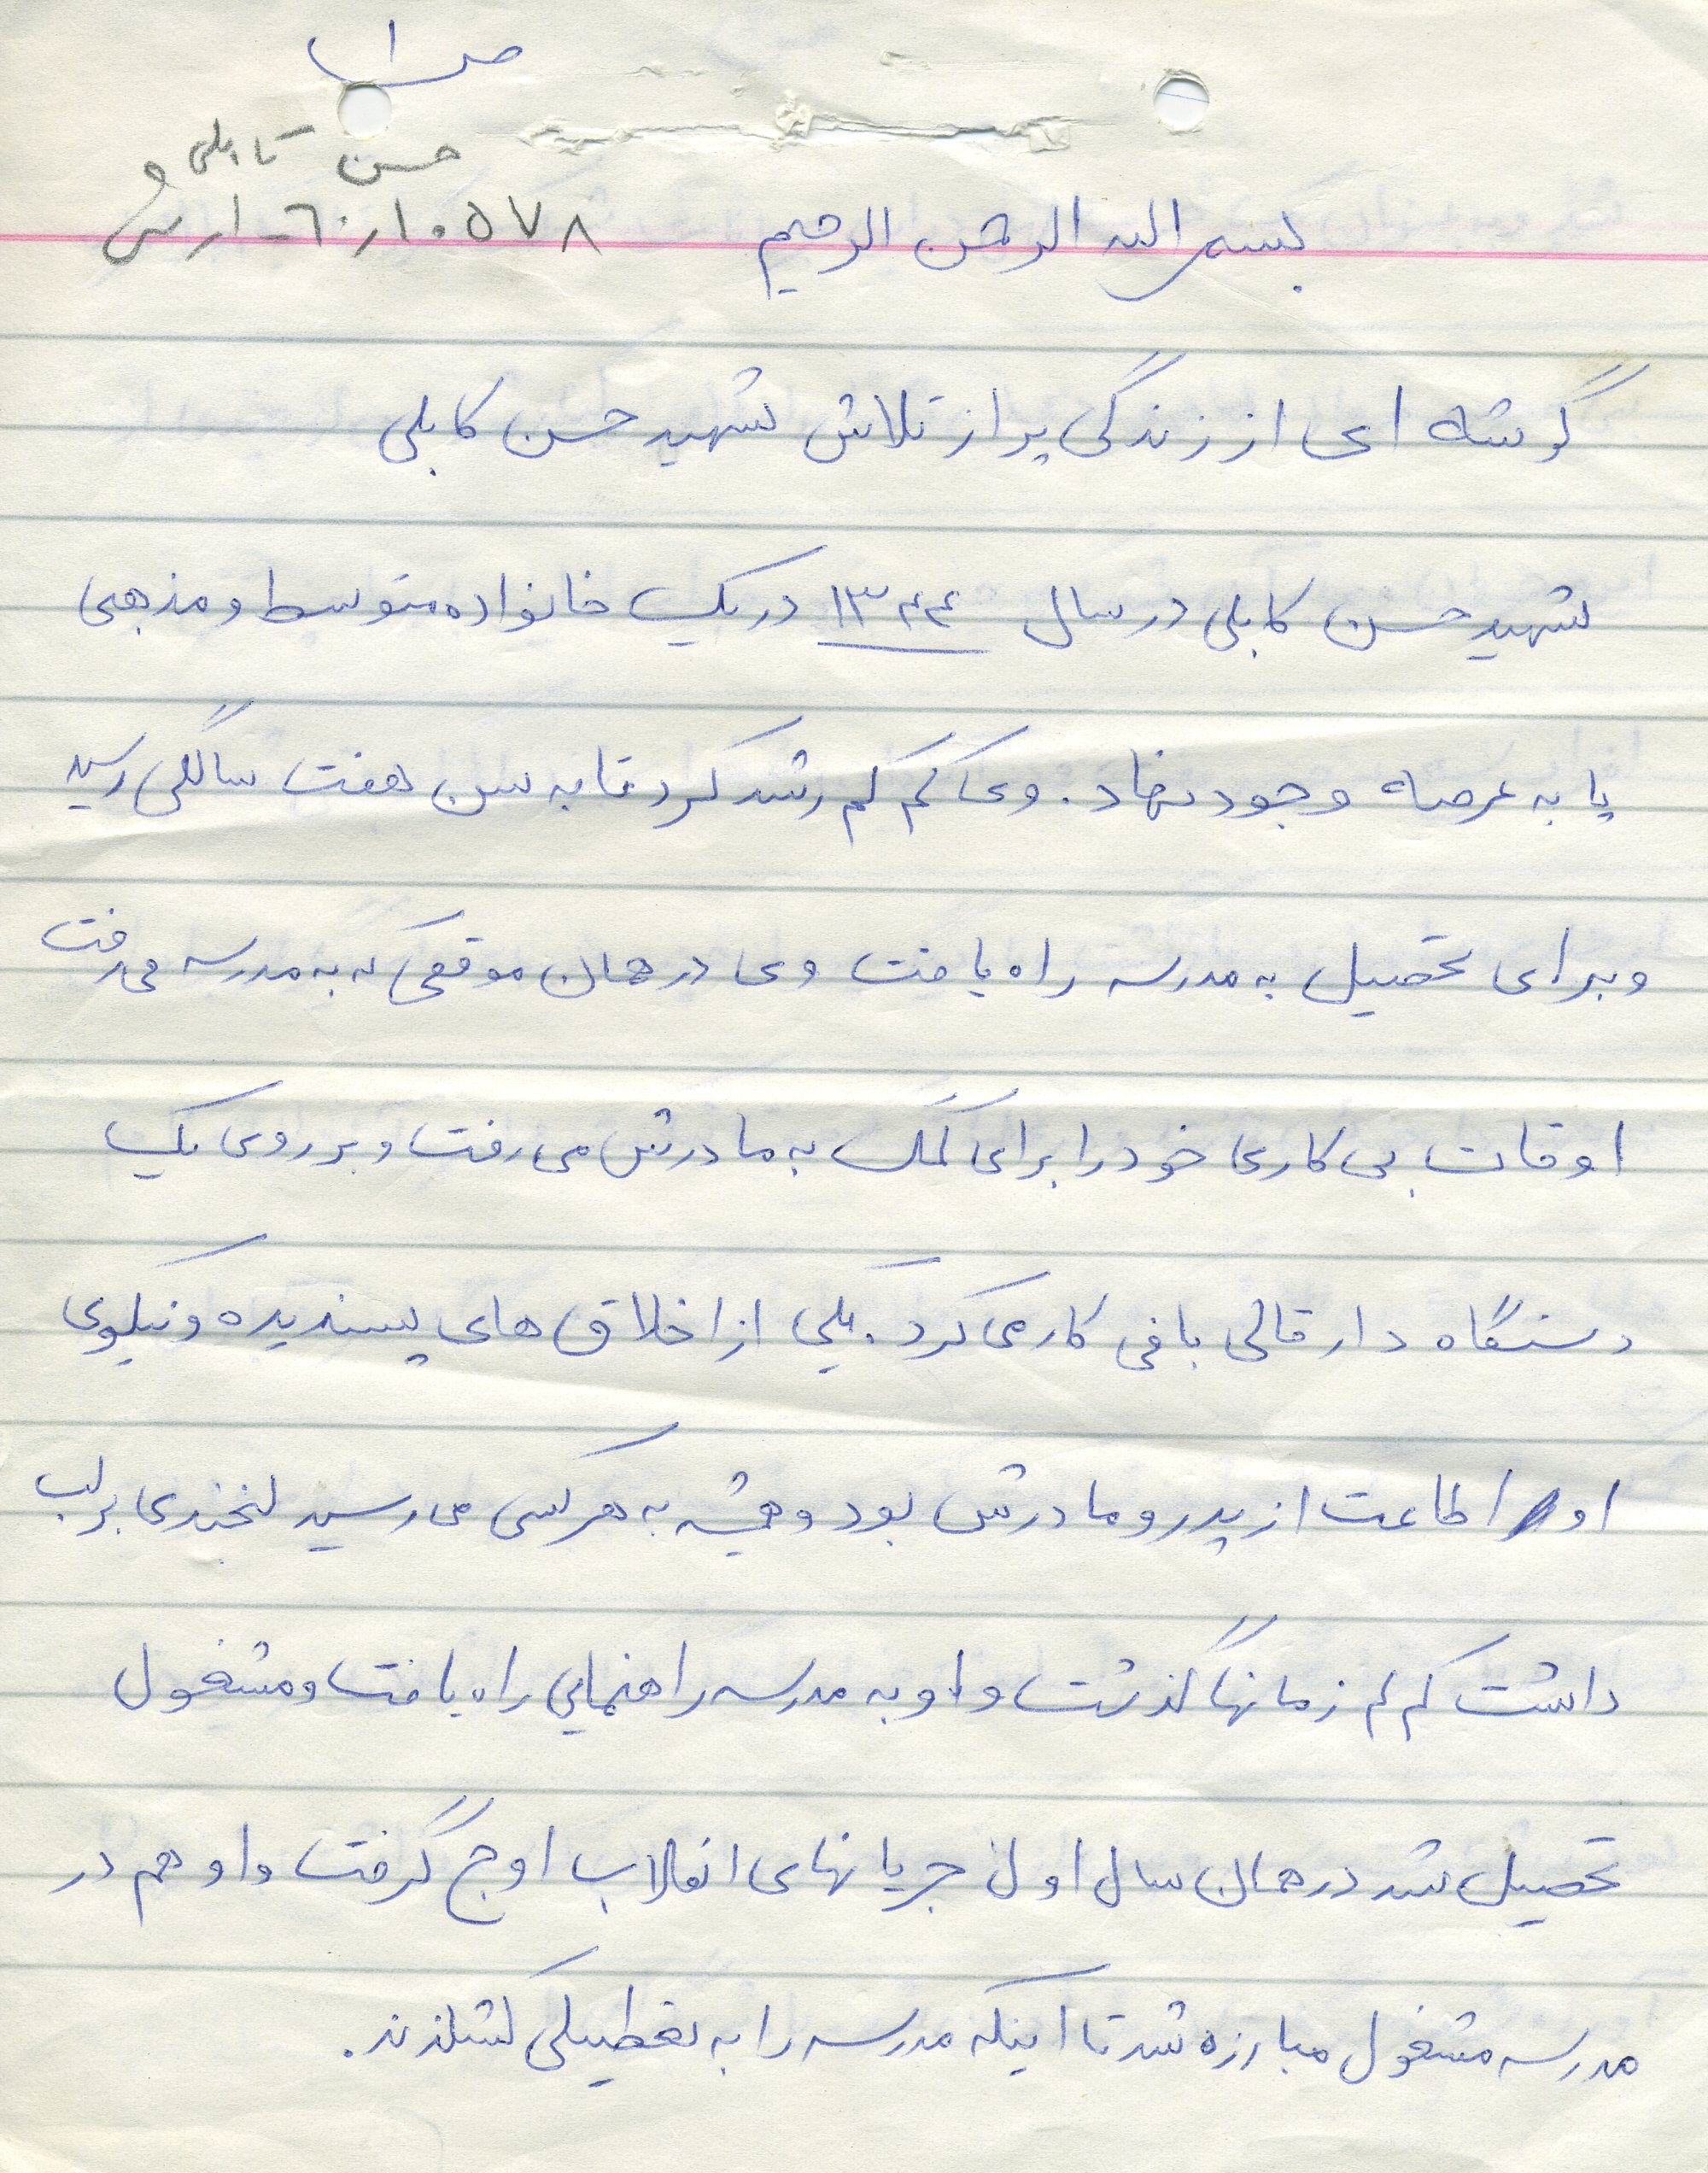 ص ۱
حسن کابلی
بسم الله الرحمن الرحیم
گوشه ای از زندگی پر از تلاش شهید حسن کابلی
شهید حسن کابلی در سال ۱۳۴۴ در یک خانواده متوسط و مذهبی
پا به عرصه وجود نهاد. وی کم کم رشد کرد تا به سن هفت سالگی رسید
و برای تحصیل به مدرسه راه یافت وی در همان موقعی که به مدرسه می رفت
اوقات بی کاری خود را برای کمک به مادرش می رفت و بر روی یک
دستگاه دار قالی بافی کار می کرد. یکی از اخلاق های پسندیده و نیکوی
او اطاعت از پدر و مادرش بود و همیشه به هر کسی می رسید لبخندی بر لب
داشت کم کم زمانها گذشت و او به مدرسه راهنمایی راه یافت و مشغول
تحصیل شد در همان سال اول جریانهای انقلاب اوج گرفت و او هم در
مدرسه مشغول مبارزه شد تا اینکه مدرسه را به تعطیلی کشاندند.